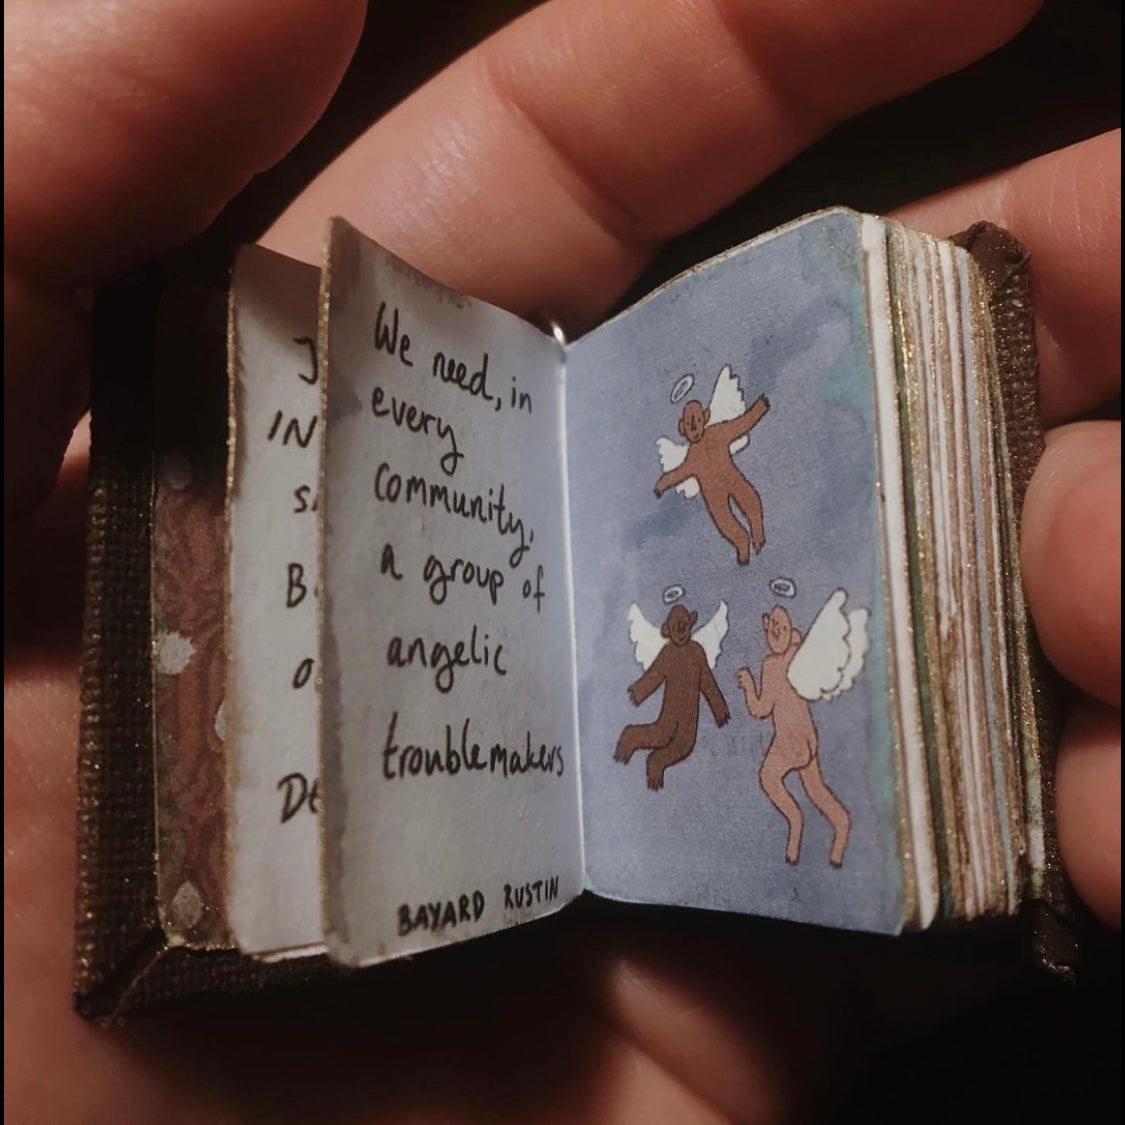 We need, in
every
community,
a group of
angelic
troublemakers
BAYARD RUSTIN